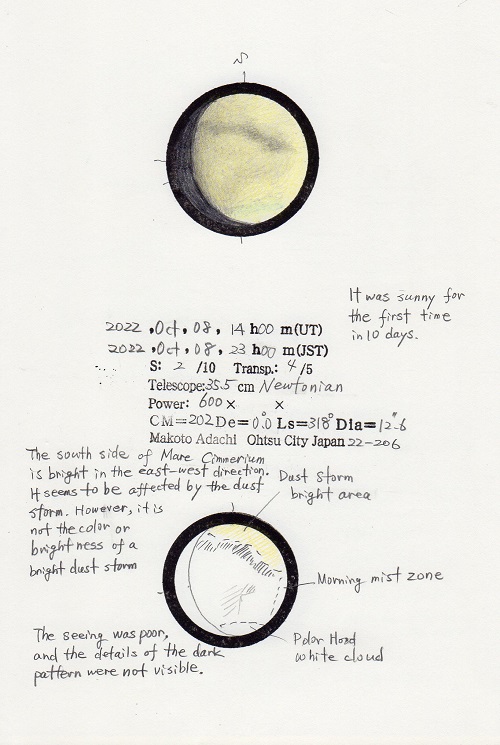 N
It was sunny for
the first time
in 10 days.
2022 , Oct , 08 , 14 h00 m(UT)
2022 , Oct , 08 , 23 h00 m(JST)
S: 2 /10 Transp.: 4/5
Telescope: 35.5 cm Newtonian
Power: 600× ×
CM=202 De=0°.0 Ls=318° Dia=12".6
Makoto Adachi Ohtsu City Japan 22-206
The south side of Mare Cimmerium
is bright in the east-west direction.
It seems to be affected by the dust
storm. However, it is
not the color or
brightness of a
bright dust storm
Dust storm
bright area
Morning mist zone
Polar Hood
white cloud
The seeing was poor,
and the details of the dark
pattern were not visible.